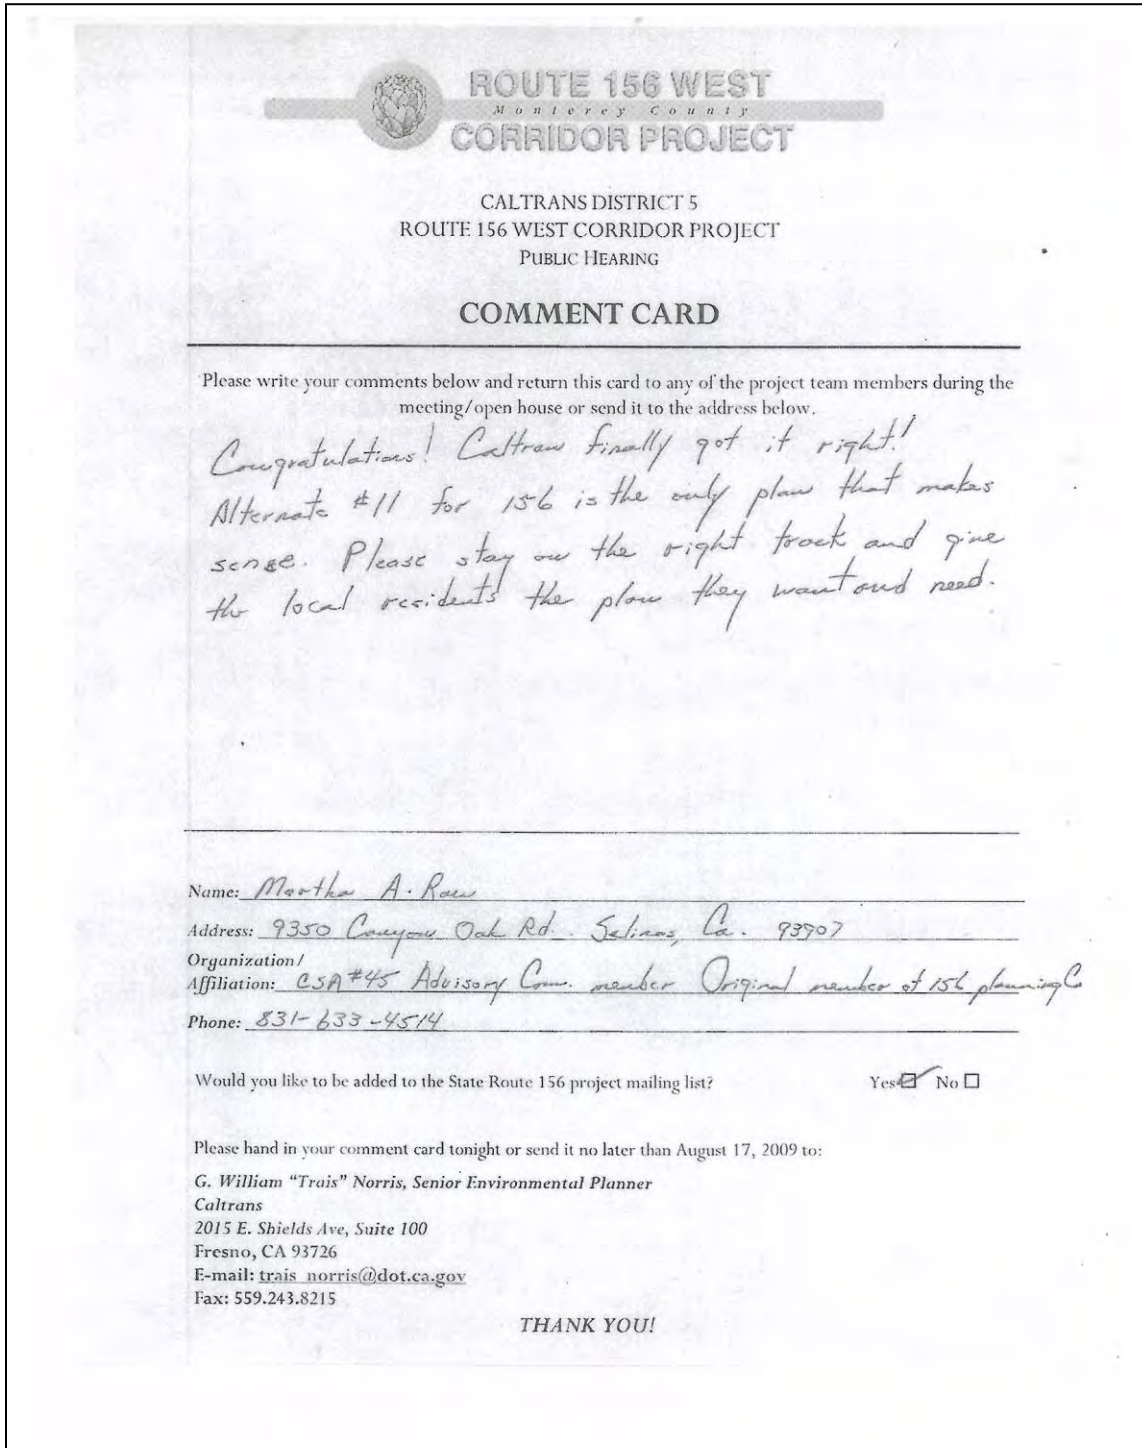 ROUTE 156 WEST
Monterey County
CORRIDOR PROJECT
CALTRANS DISTRICT 5
ROUTE 156 WEST CORRIDOR PROJECT
PUBLIC HEARING
COMMENT CARD
Please write your comments below and return this card to any of the project team members during the
meeting/open house or send it to the address below.
Congratulations! Caltran finally got it right!
Alternate #11 for 156 is the only plan that makes
sense. Please stay on the right track and give
the local residents the plan they want and need.
Name: Martha A.
Address: 9350 Canyon Oak Rd. Salinas, Ca. 93907
Organization/
Affiliation: CSA #45 Advisory Com. member Original member of 156 planning Co
Phone: 831-633-4514
Would you like to be added to the State Route 156 project mailing list? Yes No
Please hand in your comment card tonight or send it no later than August 17, 2009 to:
G. William “Trais” Norris, Senior Environmental Planner
Caltrans
2015 E. Shields Ave, Suite 100
Fresno, CA 93726
E-mail: trais_norris@dot.ca.gov
Fax: 559.243.8215
THANK YOU!